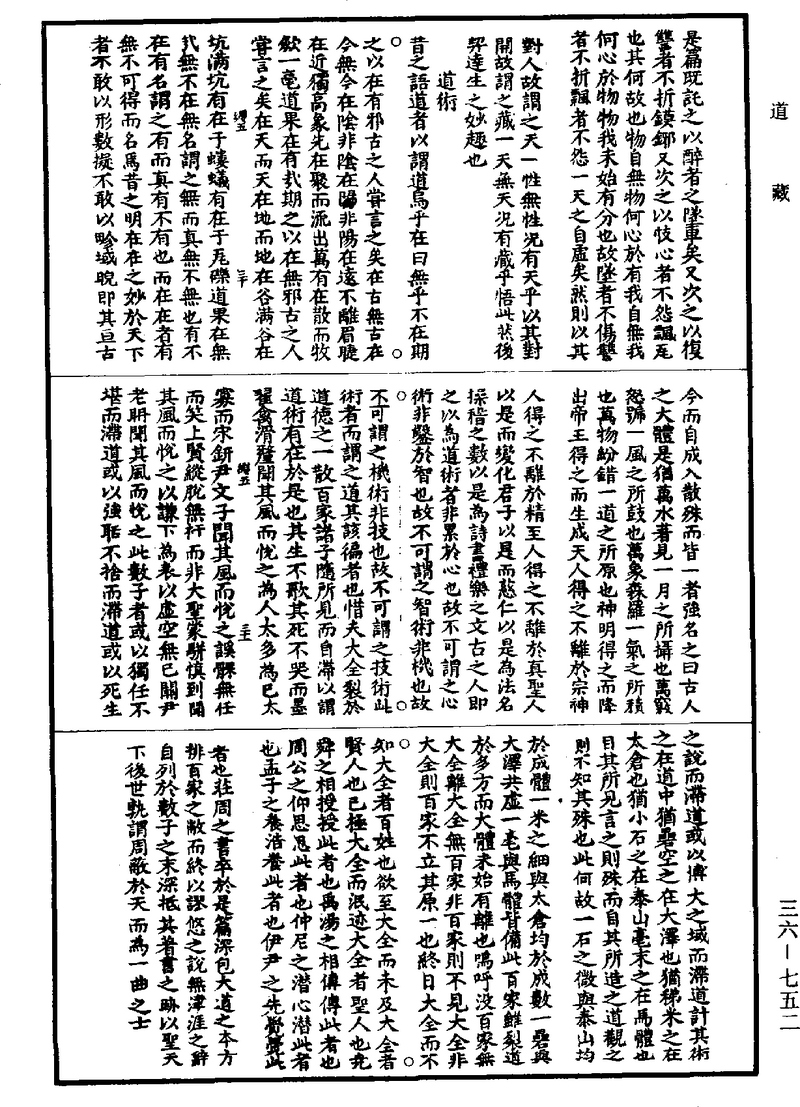 道藏
是篇既託之以醉者之墜車矣又次之以復
讐者不折鏌鎁又次之以忮心者不怨飄瓦
也其何故也物自無物何心於有我自無我
何心於物物我未始有分也故墜者不傷讐
者不折飄者不怨一天之自虛矣然則以其
對人故謂之天一性無性況有天乎以其對
開故謂之藏一天無天況有藏乎悟此然後
契達生之妙趣也
道術
昔之語道者以謂道烏乎在曰無乎不在期
之以在有邪古之人嘗言之矣在古無古在
今無今在陰非陰在陽非陽在遠不離眉睫
在近獨高象先在聚而流出萬有在散而收
歛一毫道果在有哉期之以在無邪古之人
嘗言之矣在天而天在地而地在谷滿谷在
坑滿坑有在于螻蟻有在于瓦礫道果在無
哉無不在無名謂之無而真無不無也有不
在有名謂之有而真有不有也而在在者有
無不可得而名焉昔之明在在之妙於天下
者不敢以形數擬不敢以畛域睨即其亘古
今而自成入散殊而皆一者強名之曰古人
之大體是猶萬水著見一月之所攝也萬竅
怒號一風之所鼓也萬象森羅一氣之所積
也萬物紛錯一道之所原也神明得之而降
出帝王得之而生成天人得之不離於宗神
人得之不離於精至人得之不離於真聖人
以是而變化君子以是而慈仁以是為法名
操稽之數以是為詩書禮樂之文古之人即
之以為道術者非累於心也故不可謂之心
術非鑿於智也故不可謂之智術非機也故
不可謂之機術非技也故不可謂之技術此
術者而謂之道其該徧者也惜夫大全裂於
道德之一散百家諸子隨所見而自滯以謂
道術有在於是也其生不歌其死不哭而墨
翟禽滑釐聞其風而悅之為人太多為已太
寡而宋鈃尹文子聞其風而悅之謑髁無任
而笑上賢縱脫無行而非大聖彭蒙慎到聞
其風而悅之以謙下為表以虛空無已關尹
老聃聞其風而悅之此數子者或以獨任不
堪而滯道或以強聒不捨而滯道或以死生
之說而滯道或以博大之域而滯道計其術
之在道中猶礨空之在大澤也猶稊米之在
太倉也猶小石之在泰山毫末之在馬體也
自其所見言之則殊而自其所造之道觀之
則不知其殊也此何故一石之微與泰山均
於成體一米之細與太倉均於成數一礨與
大澤共虛一毫與馬體皆備此百家雖裂道
於多方而大體未始有離也嗚呼沒百家無
大全離大全無百家非百家則不見大全非
大全則百家不立其原一也終日大全而不
知大全者百姓也欲至大全而未及大全者
賢人也已極大全而泯迹大全者聖人也堯
舜之相授授此者也禹湯之相傳傳此者也
周公之仰思思此者也仲尼之潛心潛此者
也孟子之養浩養此者也伊尹之先覺覺此
者也莊周之書卒於是篇深包大道之本力
排百家之敝而終以謬悠之說無津涯之辭
自列於數子之末深抵其著書之跡以聖天
下後世孰謂周敝於天而為一曲之士
三六—七五二